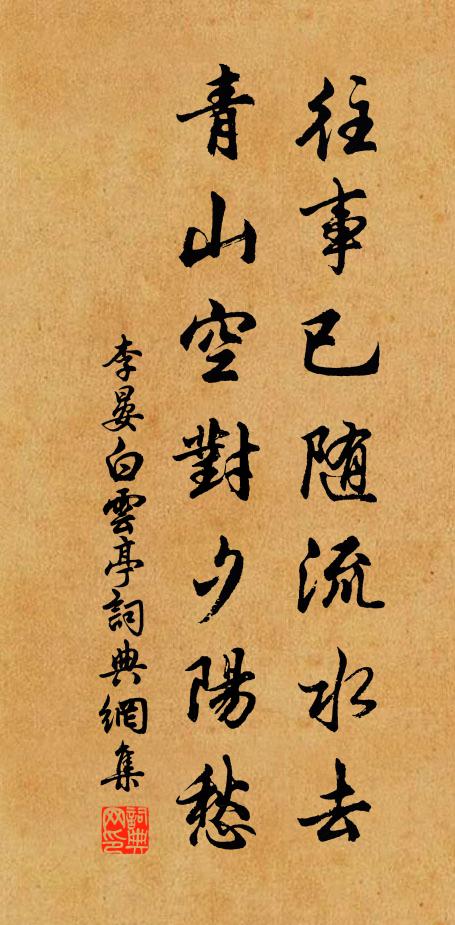 往事已随流水去
青山空對夕陽愁
李晏白雲亭詞典網集
詞典网印